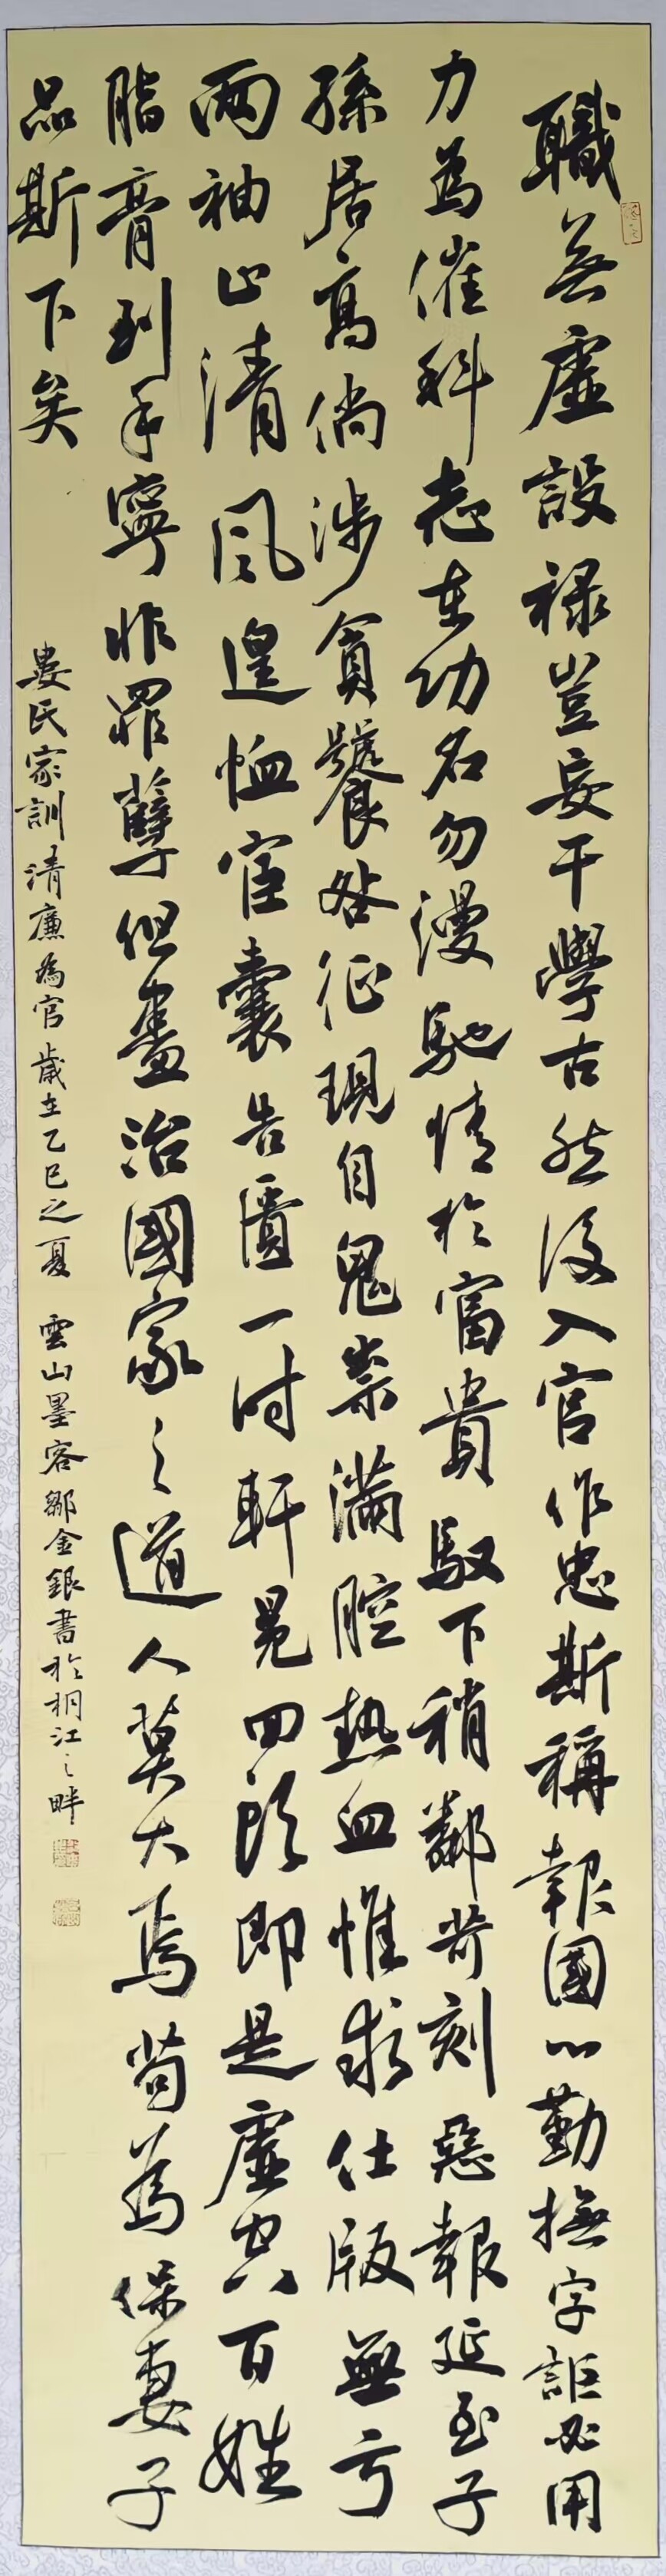 職無虛設祿豈妄干學古然後入官作忠斯稱報國心勤撫字詎必用
力為催科志在功名勿漫馳情於富貴馭下稍鄰苛刻惡報延至子
孫居高倘涉貪饕咎征現自鬼祟滿腔熱血惟求仕版無虧
兩袖清風遑恤宦囊告匱一時軒冕回頭即是虛空百姓
脂膏到手寧非罪孽但盡治國家之道人莫大焉苟為保妻子
品斯下矣
婁氏家訓清廉為官歲在乙巳之夏雲山墨客鄒金銀書於桐江之畔